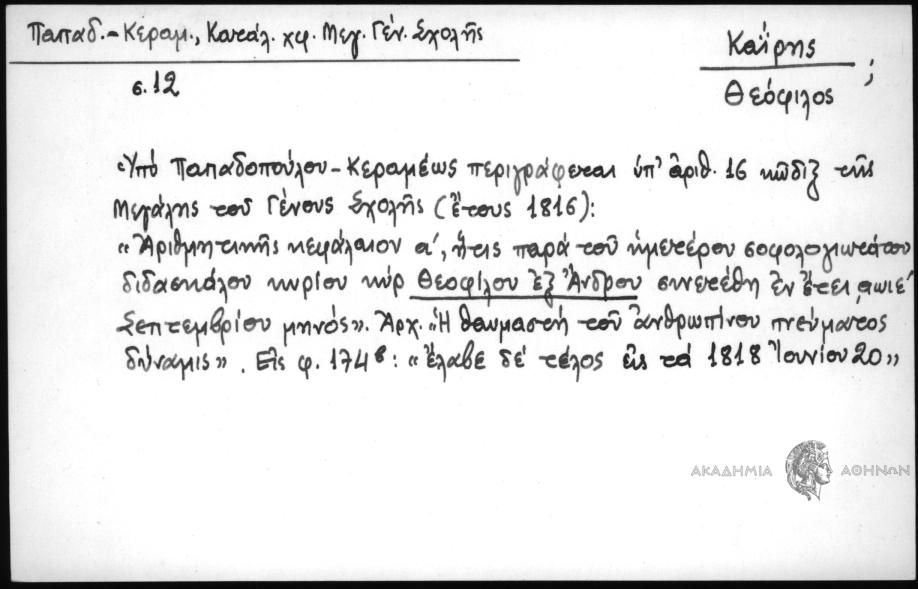 Παπαδ.-Κεραμ., Κατάλ. χφ. Μεγ. Γέν. Σχολῆς
σ. 12
Καΐρης
Θεόφιλος ;
«Ὑπὸ Παπαδοπούλου-Κεραμέως περιγράφεται ὑπ' ἀριθ. 16 κῶδιξ τῆς
Μεγάλης τοῦ Γένους Σχολῆς (ἔτους 1816):
«Ἀριθμητικῆς κεφάλαιον α', ἥτις παρὰ τοῦ ἡμετέρου σοφολογιωτάτου
διδασκάλου κυρίου κὺρ Θεοφίλου ἐξ Ἄνδρου συνετέθη ἐν ἔτει ͵αωιε'
Σεπτεμβρίου μηνός». Ἀρχ. «Ἡ θαυμαστὴ τοῦ ἀνθρωπίνου πνεύματος
δύναμις». Εἰς φ. 174β : «ἔλαβε δὲ τέλος εἰς τὰ 1818 Ἰουνίου 20»
ΑΚΑΔΗΜΙΑ ΑΘΗΝΩΝ